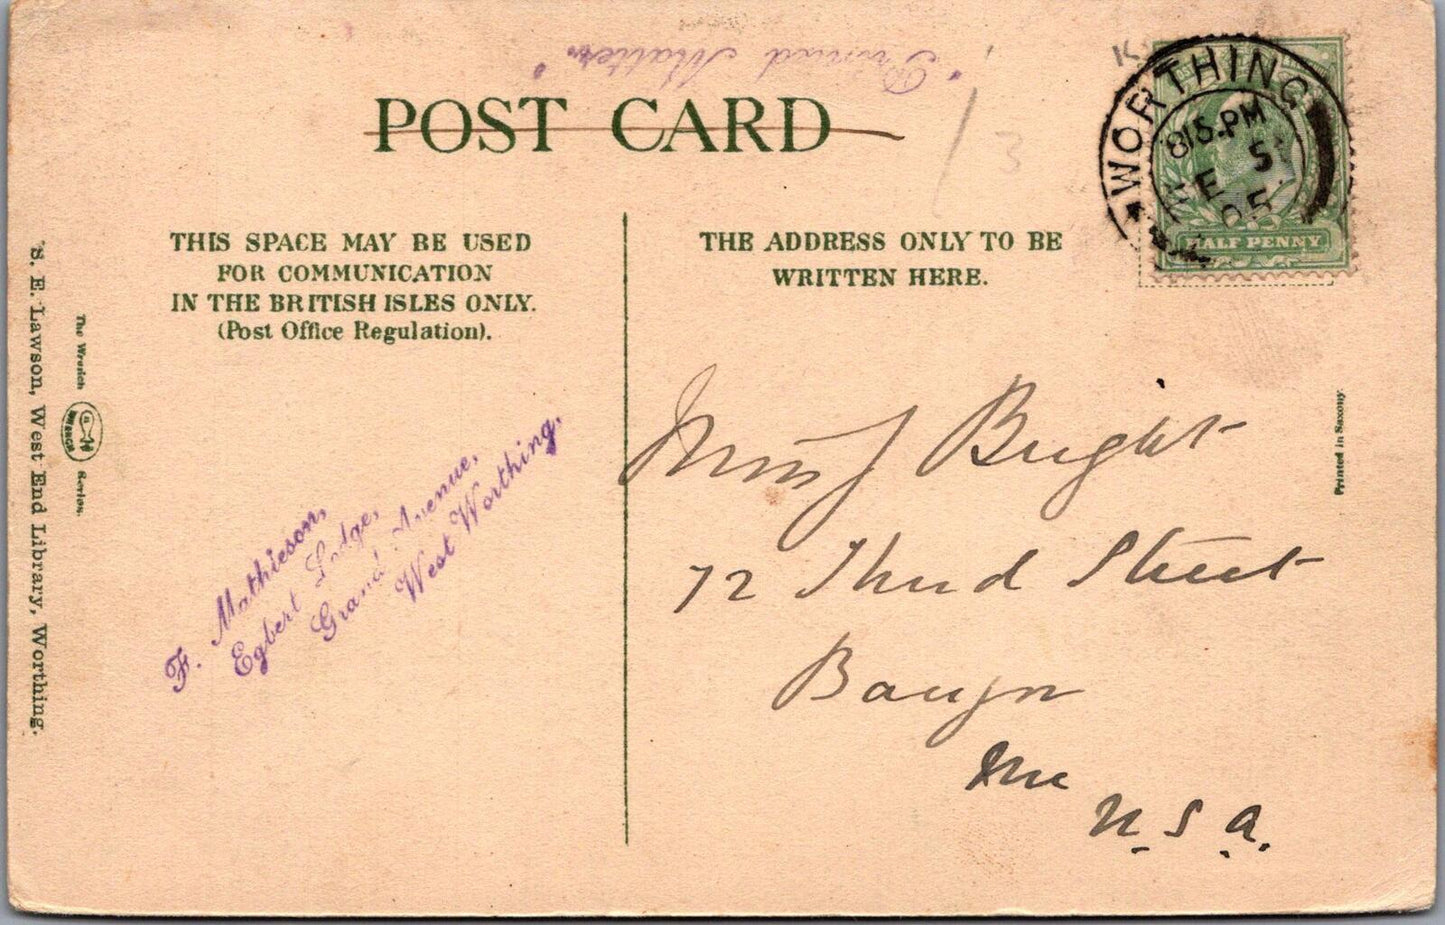 "Printed Matter"
POST CARD
WORTHING
815.PM
05
HALF PENNY
THIS SPACE MAY BE USED
FOR COMMUNICATION
IN THE BRITISH ISLES ONLY.
(Post Office Regulation).
THE ADDRESS ONLY TO BE
WRITTEN HERE.
F. Mathieson,
Egbert Lodge,
Grand Avenue,
West Worthing.
Bright
72 Third Street
Bangor
Me
U.S.A.
The Wrench
WRENCH
Series.
S. E. Lawson, West End Library, Worthing.
Printed in Saxony.